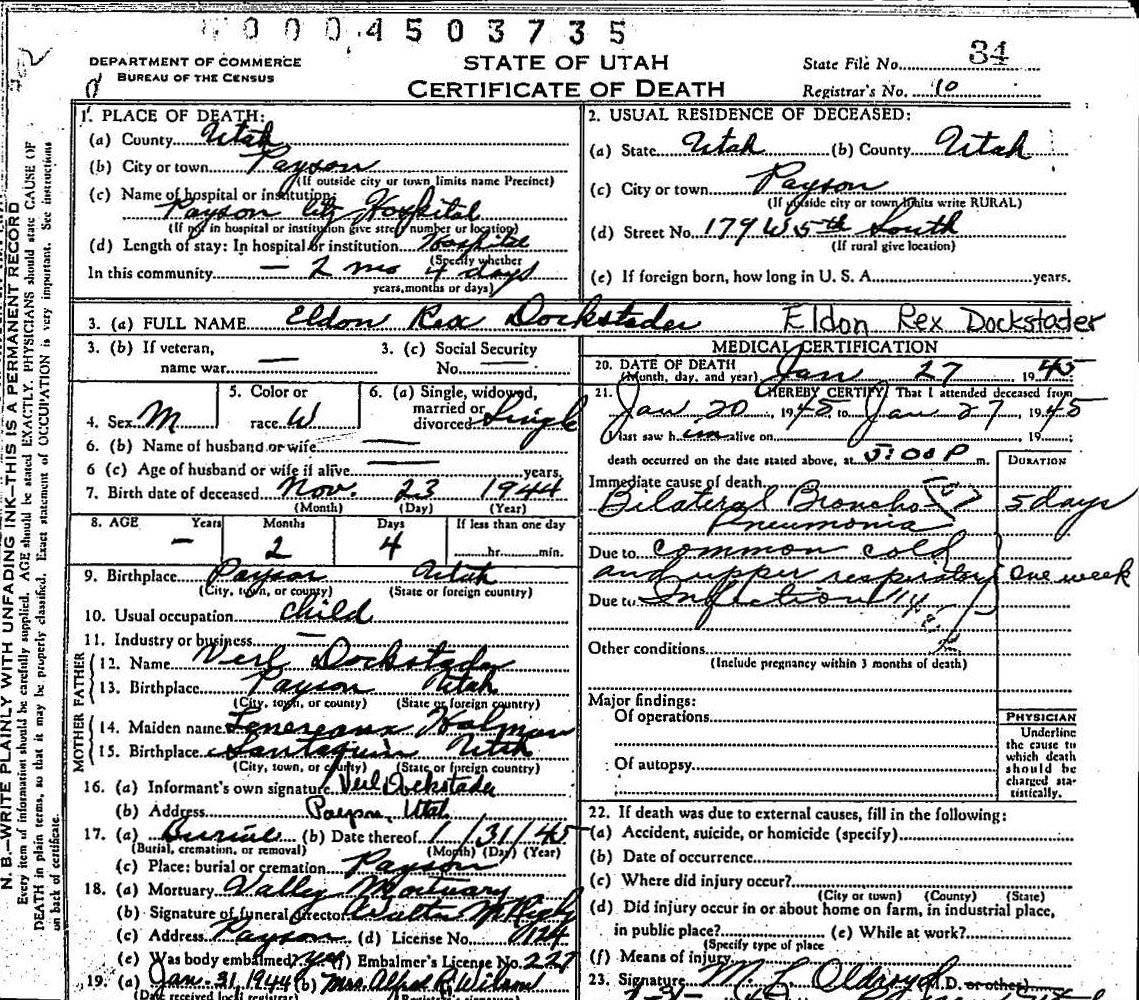 0 0 0 4 5 0 3 7 3 5
DEPARTMENT OF COMMERCE
BUREAU OF THE CENSUS
STATE OF UTAH
CERTIFICATE OF DEATH
State File No. 34
Registrar's No. 10
N. B.—WRITE PLAINLY WITH UNFADING INK—THIS IS A PERMANENT RECORD
Every item of information should be carefully supplied. AGE should be stated EXACTLY. PHYSICIANS should state CAUSE OF
DEATH in plain terms, so that it may be properly classified. Exact statement of OCCUPATION is very important. See instructions
on back of certificate.
1. PLACE OF DEATH:
(a) County Utah
(b) City or town Payson
(If outside city or town limits name Precinct)
(c) Name of hospital or institution:
Payson City Hospital
(If not in hospital or institution give street number or location)
(d) Length of stay: In hospital or institution
(Specify whether
In this community — 2 mo 4 days
years, months or days)
2. USUAL RESIDENCE OF DECEASED:
(a) State Utah (b) County Utah
(c) City or town Payson
(If outside city or town limits write RURAL)
(d) Street No. 179 W 5th South
(If rural give location)
(e) If foreign born, how long in U. S. A. years.
3. (a) FULL NAME Eldon Rex Dockstader Eldon Rex Dockstader
3. (b) If veteran,
name war —
3. (c) Social Security
No. —
4. Sex M
5. Color or
race W
6. (a) Single, widowed,
married or
divorced Single
6. (b) Name of husband or wife —
6 (c) Age of husband or wife if alive — years.
7. Birth date of deceased Nov. 23 1944
(Month) (Day) (Year)
8. AGE Years Months Days If less than one day
— 2 4 hr. min.
9. Birthplace Payson Utah
(City, town, or county) (State or foreign country)
10. Usual occupation child
11. Industry or business —
FATHER
12. Name Verl Dockstader
13. Birthplace Payson Utah
(City, town, or county) (State or foreign country)
MOTHER
14. Maiden name
15. Birthplace Santaquin Utah
(City, town, or county) (State or foreign country)
16. (a) Informant's own signature Verl Dockstader
(b) Address Payson, Utah
17. (a) Burial (b) Date thereof 1/31/45
(Burial, cremation, or removal) (Month) (Day) (Year)
(c) Place: burial or cremation Payson
18. (a) Mortuary Valley Mortuary
(b) Signature of funeral director
(c) Address Payson (d) License No.
(e) Was body embalmed? yes (f) Embalmer's License No. 227
19. (a) Jan. 31, 1944 (b) Mrs Alfred R. Wilson
(Date received local registrar) (Registrar's signature)
MEDICAL CERTIFICATION
20. DATE OF DEATH
(Month, day, and year) Jan 27 1945
21. I HEREBY CERTIFY, That I attended deceased from
Jan 20, 1945 to Jan 27, 1945
I last saw him alive on , 19 ;
death occurred on the date stated above, at 5:00 P m.
DURATION
Immediate cause of death
Bilateral Broncho 5 days
Pneumonia
Due to common cold
and upper respiratory one week
Due to Infection
Other conditions
(Include pregnancy within 3 months of death)
Major findings:
Of operations
Of autopsy
PHYSICIAN
Underline
the cause to
which death
should be
charged sta-
tistically.
22. If death was due to external causes, fill in the following:
(a) Accident, suicide, or homicide (specify)
(b) Date of occurrence
(c) Where did injury occur?
(City or town) (County) (State)
(d) Did injury occur in or about home on farm, in industrial place,
in public place? (e) While at work?
(Specify type of place
(f) Means of injury
23. Signature M. L. Oldroyd (M.D. or other)